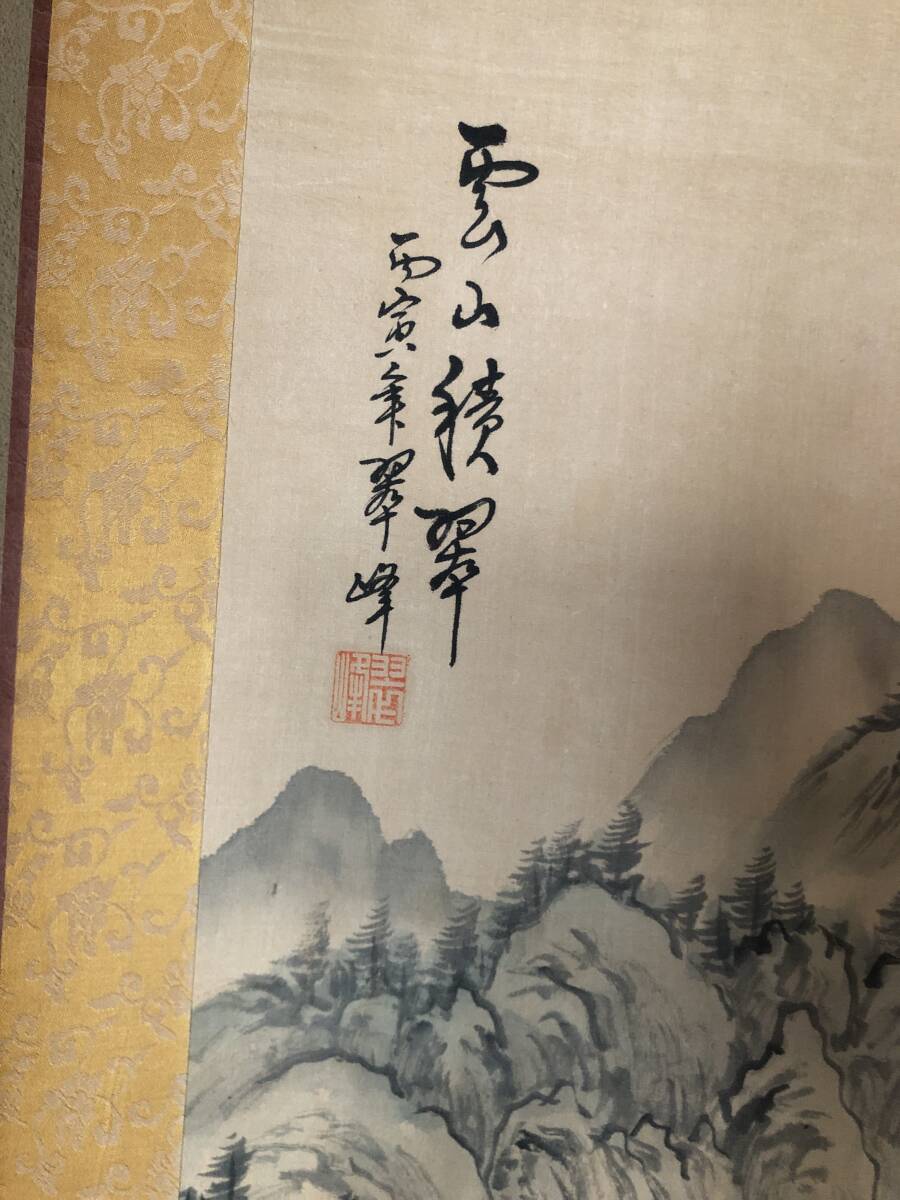 雲山積翠
丙寅年翠峰
翠峰